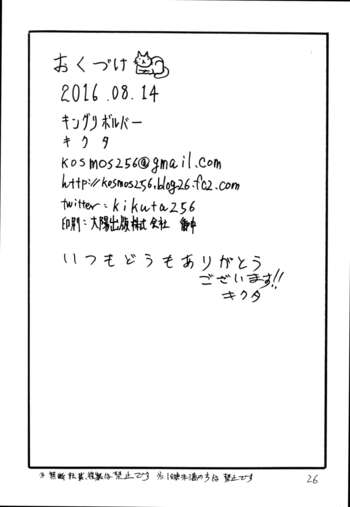 おくづけ
2016.08.14
キングリボルバー
キクタ
kosmos256@gmail.com
http://kosmos256.blog26.fc2.com
twitter:kikuta256
印刷:太陽出版株式会社
いつもどうもありがとう
ございます!!
キクタ
※無断転載、複製は禁止です 18歳未満の方は禁止です
26